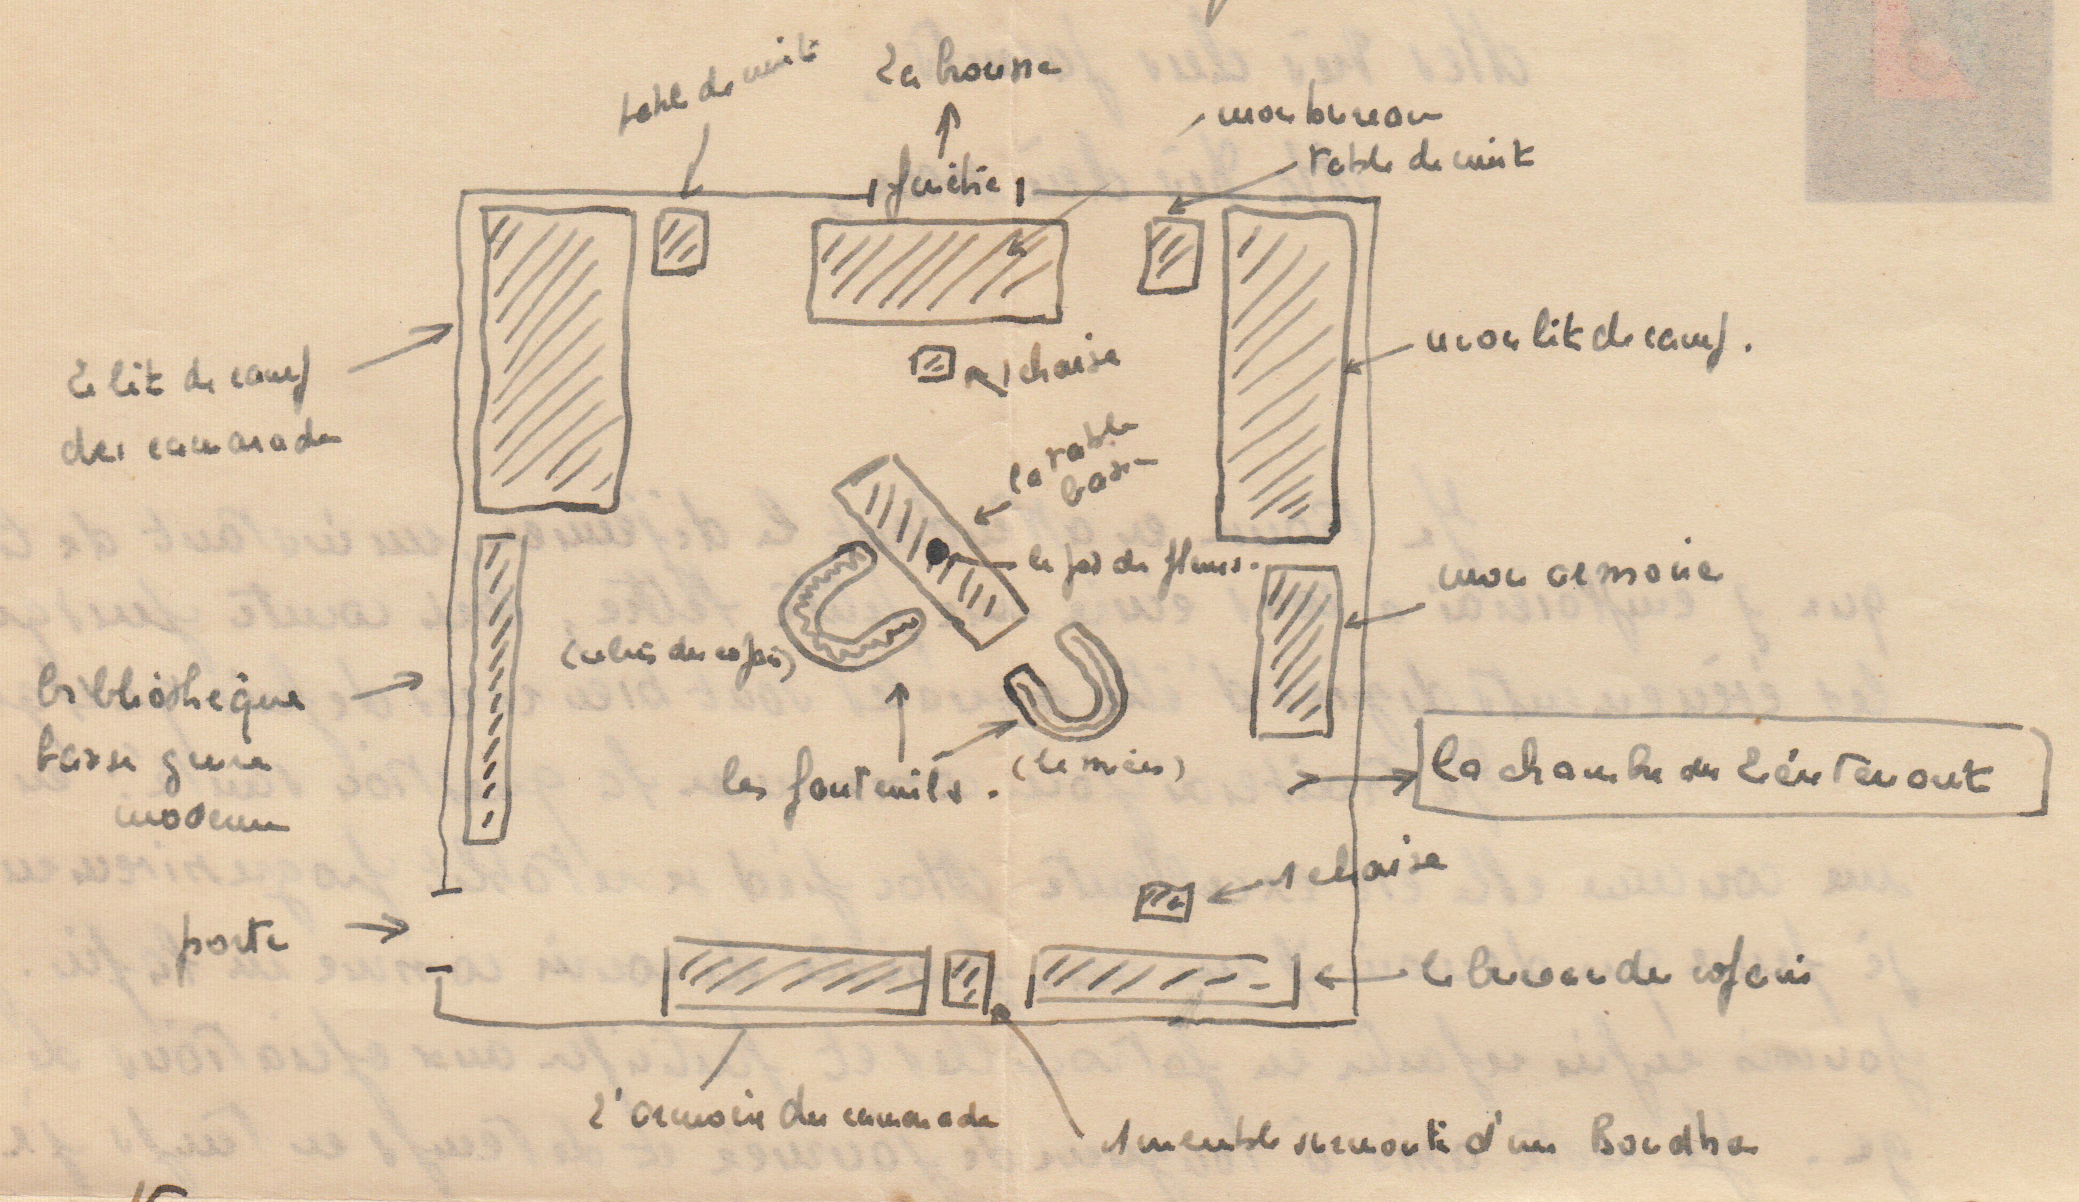 table de nuit
La brousse
mon bureau
table de nuit
fenêtre
mon lit de camp.
1 chaise
Le lit de camp
du camarade
la table
basse
le pot de fleurs.
mon armoire
(celui du copain)
la bibliothèque
basse genre
moderne
les fauteuils.
(le mien)
la chambre du Lieutenant
1 chaise
porte
le bureau du copain
L'armoire du camarade
1 meuble surmonté d'un Boudha